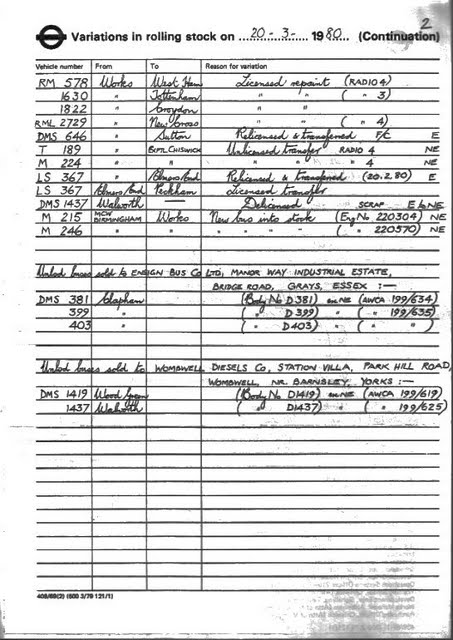 2
Variations in rolling stock on 20-3- 1980 (Continuation)
Vehicle number From To Reason for variation
RM 578 Works West Ham Licensed repaint (RADIO 4)
1630 " Tottenham " " ( " 3)
1822 " Croydon " "
RML 2729 " New Cross " " ( " 4)
DMS 646 " Sutton Relicensed & transferred F/C E
T 189 " EXPTL CHISWICK Unlicensed transfer RADIO 4 NE
M 224 " " " " " 4 NE
LS 367 " Elmers/End Relicensed & transferred (20.2.80) E
LS 367 Elmers/End Peckham Licensed transfer
DMS 1437 Walworth — Delicensed SCRAP E to NE
M 215 MCW BIRMINGHAM Works New bus into stock (Eng No 220304) NE
M 246 " " " " ( " 220570) NE
Unlcd buses sold to ENSIGN BUS CO LTD, MANOR WAY INDUSTRIAL ESTATE,
BRIDGE ROAD, GRAYS, ESSEX :—
DMS 381 Clapham (Body No D381) ex NE (AWCA 199/634)
399 " ( " D399) " ( " 199/635)
403 " ( " D403) " ( " )
Unlcd buses sold to WOMBWELL DIESELS CO, STATION VILLA, PARK HILL ROAD,
WOMBWELL, NR. BARNSLEY, YORKS :—
DMS 1419 Wood Green (Body No D1419) ex NE (AWCA 199/619)
1437 Walworth ( " D1437) " ( " 199/625)
409/69(2) (500 3/79 121/1)